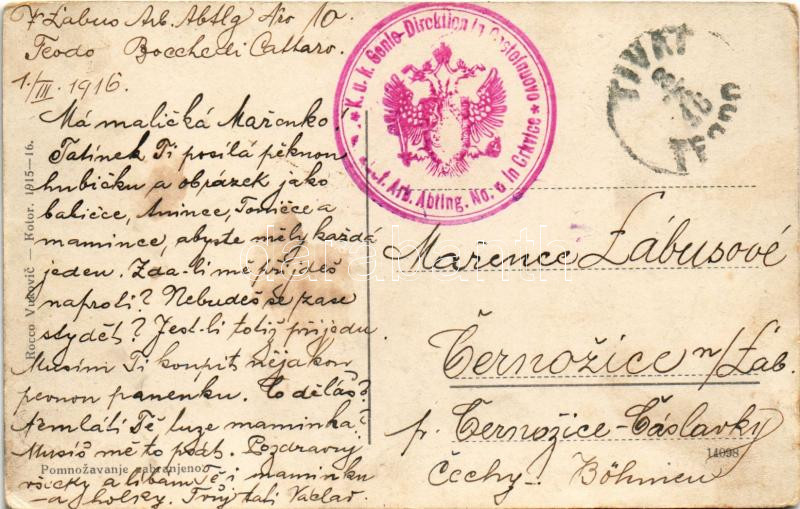 Žabus Arb. Abtlg Nro 10
Teodo Bocche di Cattaro.
1./III. 1916.
Má maličká Mařenko
Tatínek Ti posílá pěknou
hubičku a obrázek jako
babičce, Anince, Tončce a
mamince, abyste měly každá
jeden. Zda-li mě přijdeš
naproti? Nebudeš se zase
stydět? Jest-li totiž přijedu
Musím Ti koupit nějakou
pevnou panenku. Co děláš?
Nemlátí Tě luze maminka?
Musíš mě to psát. Pozdravuj
všecky a líbám Tě i maminku
a holky. Tvůj tati Václav.
Rocco Vuković — Kotor. 1915—16.
Pomnožavanje zabranjeno.
K. u. k. Genie-Direktion in Castelnuovo
Arb. Abtlng. No. 6 in Crkvice
TIVAT
TEODO
Marence Žábusové
Černožice n/Lab.
p. Černožice-Čáslavky
14098
Čechy - Böhmen
darabanth